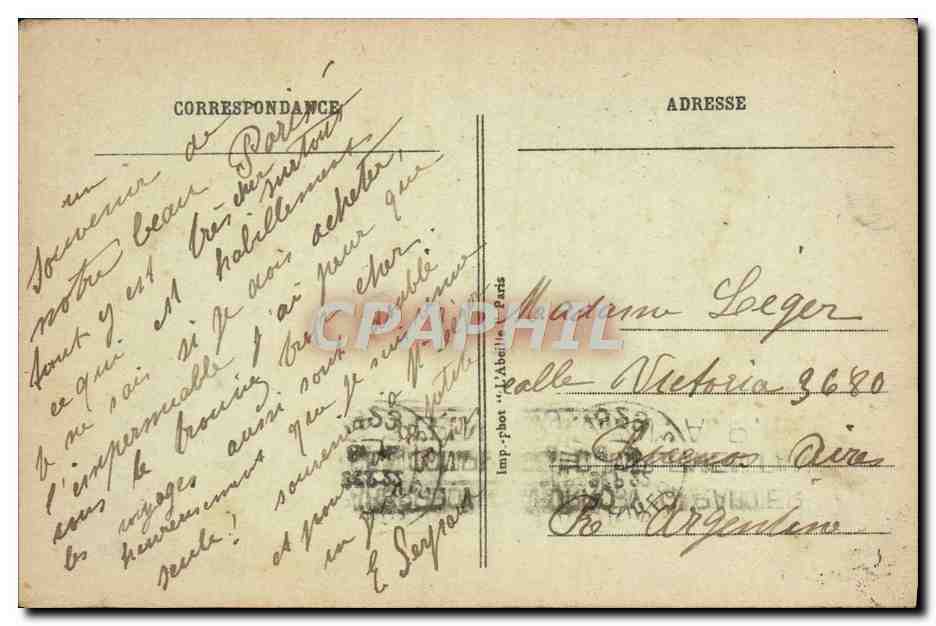 CORRESPONDANCE
ADRESSE
un
souvenir de
notre beau Paris
tout y est très cher surtout
ce qui est habillement
je ne sais si je dois acheter
l'impermeable j'ai peur que
vous le trouviez trop cher.
les voyages aussi sont
heureusement que je suis
seule! souvenir à Mr Léger
et pour
E
Imp.-phot "L'Abeille" Paris
Madame Léger
calle Victoria 3680
Buenos Aires
Re Argentine
CPAPHIL